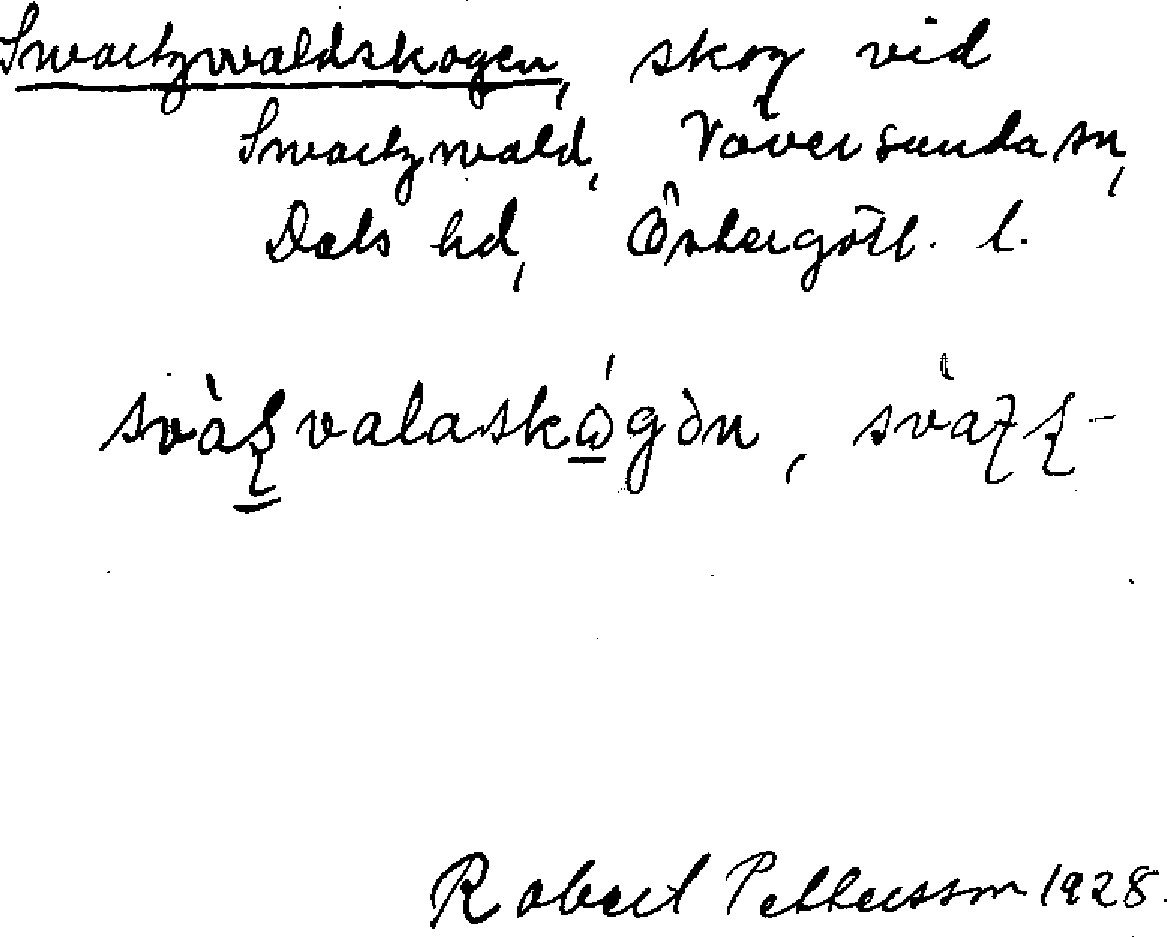 Swartzwaldskogen, skog vid
Swartzwald, Väversunda sn,
Dals hd, Östergötl. l.
svàʂvalaskógən, svàʈʂ-
Robert Pettersson 1928.